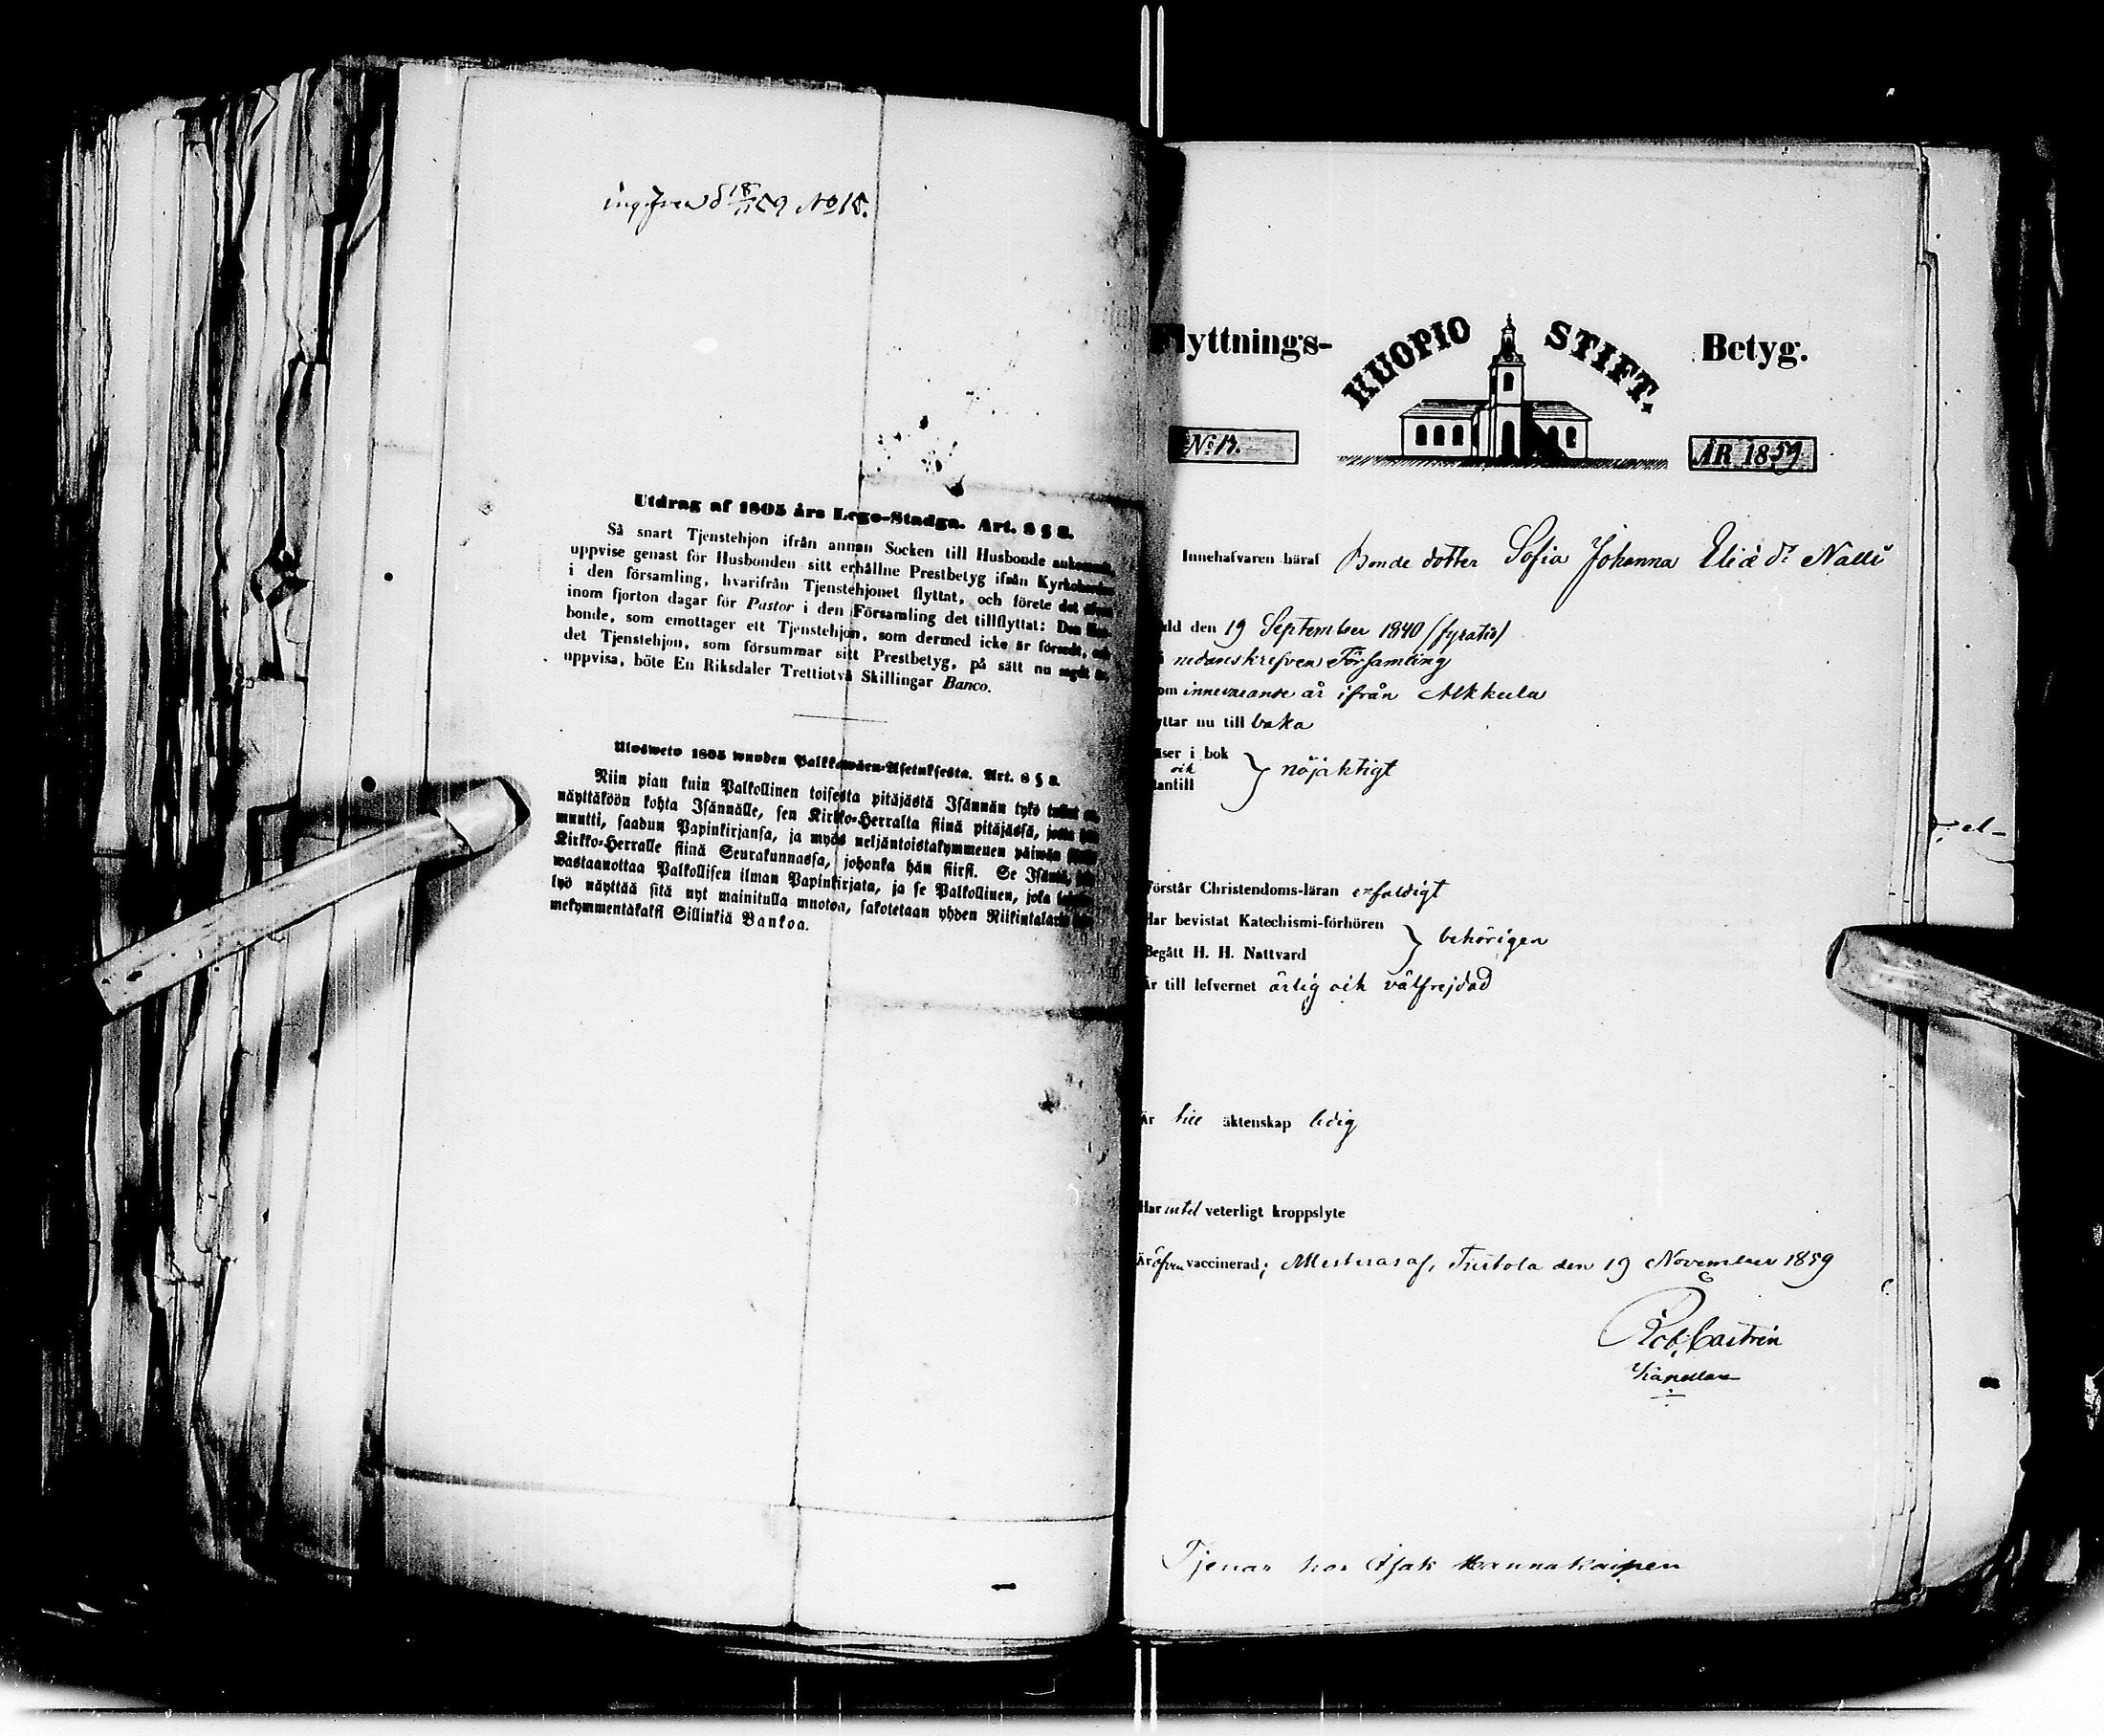 No 15.
Utdrag af 1805 års Lego-Stadga. Art. 8 § 8.
Så snart Tjenstehjon ifrån annan Socken till Husbonde
uppvise genast för Husbonden sitt erhållne Prestbetyg ifrån
i den församling, hvarifrån Tjenstehjonet flyttat, och förete det
inom fjorton dagar för Pastor i den Församling det tillflyttat: Den
bonde, som emottager ett Tjenstehjon, som dermed icke är försedt,
det Tjenstehjon, som försummar sitt Prestbetyg, på sätt nu sagdt är,
uppvisa, böte En Riksdaler Trettiotvå Skillingar Banco.
Ulosweto 1805 wuoden Palkkawäen-Asetuksesta. Art. 8 § 8.
Niin pian kuin Palkollinen toisesta pitäjästä Isännän tykö
näyttäköön kohta Isännälle, sen Kirkko-Herralta siinä pitäjässä,
muutti, saadun Papinkirjansa, ja myös neljäntoistakymmenen päiwän
Kirkko-Herralle siinä Seurakunnassa, johonka hän siirsi. Se
wastaanottaa Palkollisen ilman Papinkirjata, ja se Palkollinen, joka
lyö näyttää sitä nyt mainitulla muotoa, sakotetaan yhden Riikintalarin
mekymmentäkaksi Sillinkiä Bankoa.
lyttnings-
KUOPIO STIFT.
Betyg.
No
ÅR 1859
Innehafvaren häraf Bonde dotter Sofia Johanna Eliæ dr Nalli
dd den 19 September 1840 (fyratio)
nedanskrefven Församling
om innevarande år ifrån Alkkula
yttar nu till baka
äser i bok
och
tantill
} nöjaktigt
Förstår Christendoms-läran enfaldigt
Har bevistat Katechismi-förhören
Begått H. H. Nattvard
} behörigen
Är till lefvernet ärlig och välfrejdad
Är till äktenskap ledig
Har intet veterligt kroppslyte
Är äfven vaccinerad; Attesteras af, Turtola den 19 November 1859
Rob. Castrén
Kapellan
Tjenar hos Isak Hannukainen